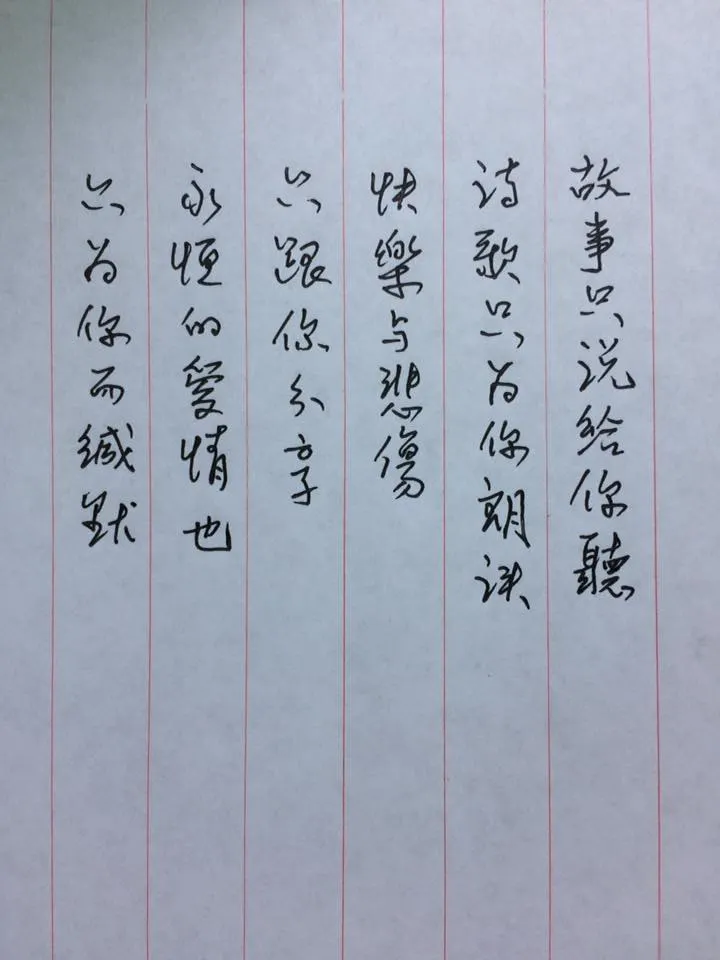 故事只说给你聽
诗歌只为你朗读
快樂与悲傷
只跟你分享
永恒的愛情也
只为你而缄默